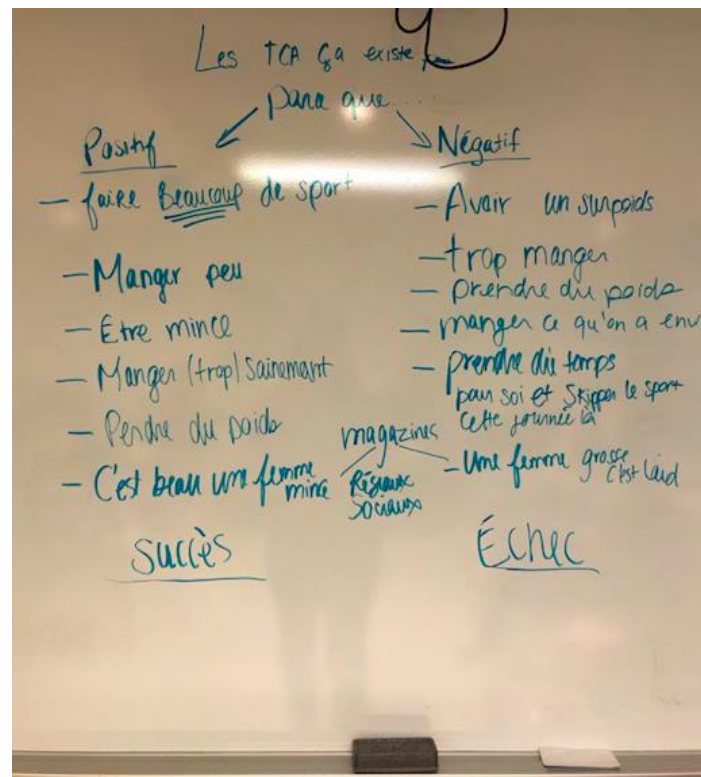 Les TCA ça existe
para que....
Positif
- faire Beaucoup de sport
- Manger peu
- Être mince
- Manger (trop) sainement
- Perdre du poids
- C'est beau une femme
mince
Succès
magazines
Réseaux
Sociaux
Négatif
- Avoir un surpoids
- trop manger
- prendre du poids
- manger ce qu'on a env
- prendre du temps
pour soi et skipper le sport
cette journée là
- Une femme grosse
c'est laid
Échec